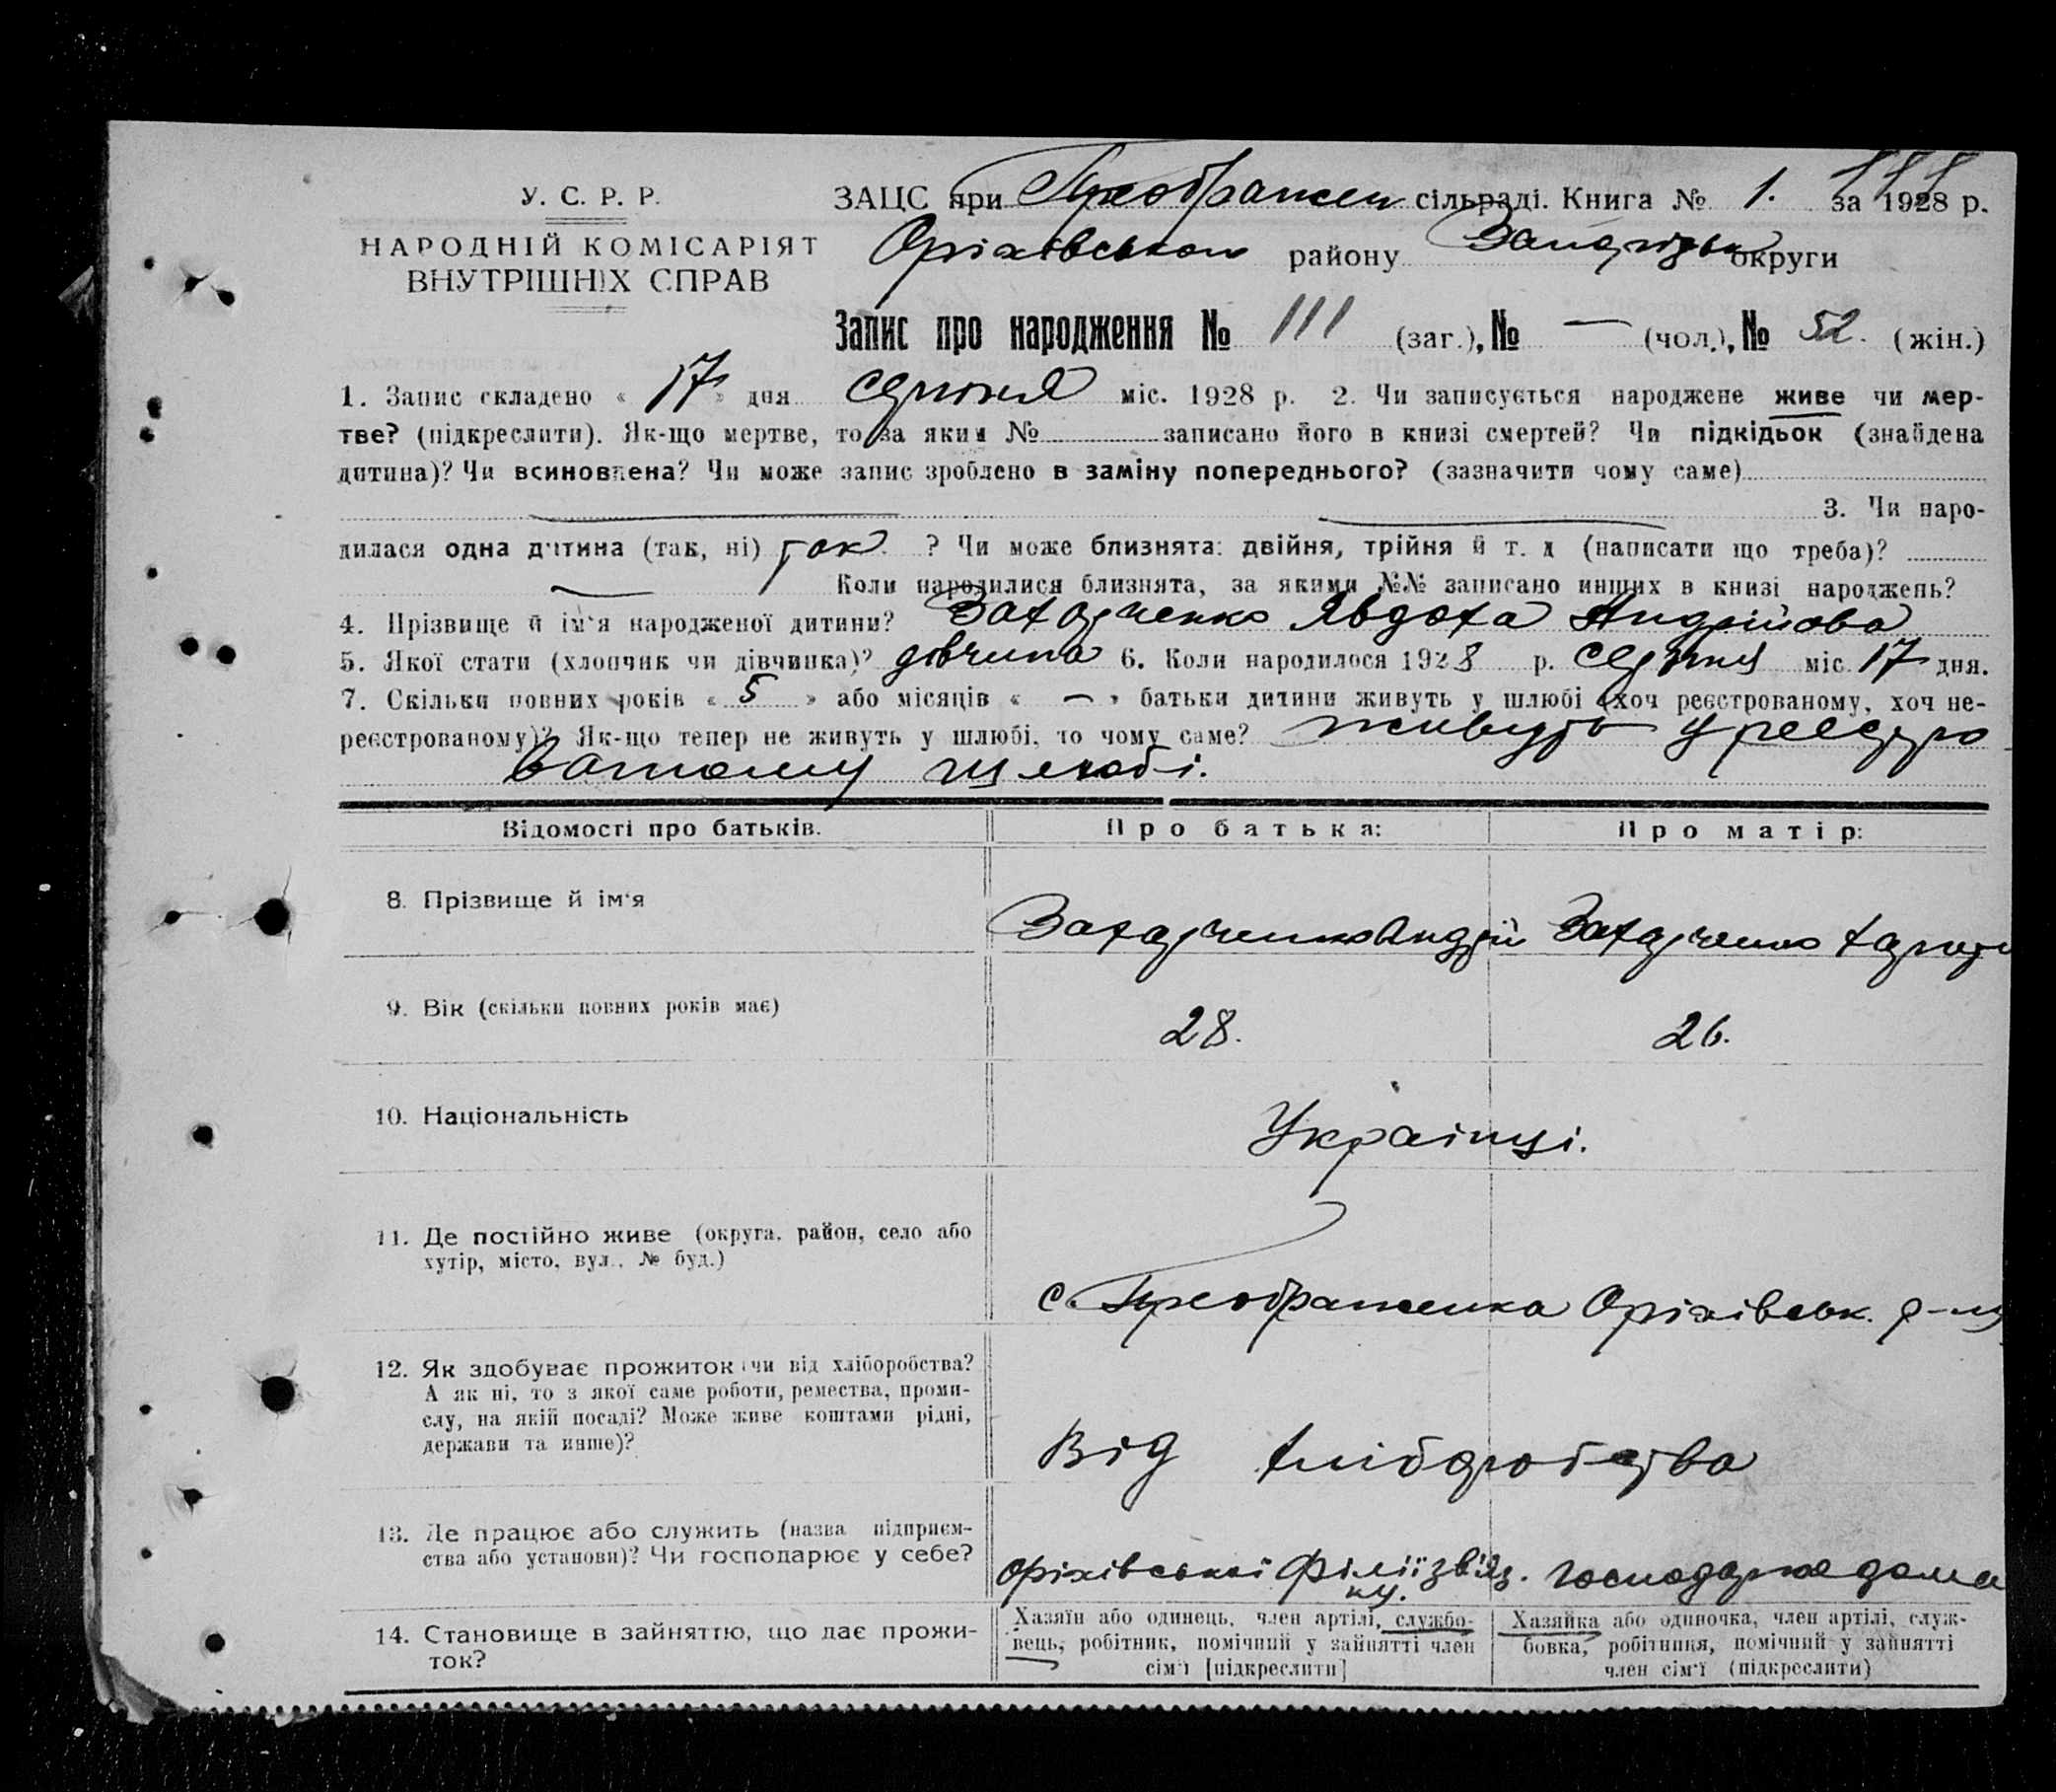 У. С. Р. Р.
НАРОДНІЙ КОМІСАРІЯТ
ВНУТРІШНІХ СПРАВ
ЗАЦС при Преображен сільраді. Книга № 1. за 1928 р.
111
Оріхівськом району Запорізьк округи
Запис про народження № 111 (заг.), № — (чол.), № 52. (жін.)
1. Запис складено « 17 » дня серпня міс. 1928 р. 2. Чи записується народжене живе чи мер-
тве? (підкреслити). Як-що мертве, то за яким № записано його в книзі смертей? Чи підкідьок (знайдена
дитина)? Чи всиновлена? Чи може запис зроблено в заміну попереднього? (зазначити чому саме)
3. Чи наро-
дилася одна дитина (так, ні) так. ? Чи може близнята: двійня, трійня й т. д (написати що треба)?
— Коли народилися близнята, за якими №№ записано инших в книзі народжень?
4. Прізвище й ім'я народженої дитини? Захарченко Явдоха Андрійова
5. Якої стати (хлопчик чи дівчинка)? дівчина 6. Коли народилося 1928 р. серпня міс. 17 дня.
7. Скільки повних років « 5 » або місяців « — » батьки дитини живуть у шлюбі (хоч реєстрованому, хоч не-
реєстрованому)? Як-що тепер не живуть у шлюбі, то чому саме? живуть у реєстро
ваному шлюбі.
Відомості про батьків. Про батька: Про матір:
8. Прізвище й ім'я Захарченко Андрій Захарченко
9. Вік (скільки повних років має) 28. 26.
10. Національність Українці.
11. Де постійно живе (округа, район, село або
хутір, місто, вул., № буд.)
с. Преображенка Оріхівськ. р-ну
12. Як здобуває прожиток чи від хліборобства?
А як ні, то з якої саме роботи, ремества, проми-
слу, на якій посаді? Може живе коштами рідні,
держави та инше)?
Від хліборобства
13. Де працює або служить (назва підприєм-
ства або установи)? Чи господарює у себе?
Оріхівської філії звяз. господарює дома
ку.
14. Становище в зайняттю, що дає прожи-
ток?
Хазяїн або одинець, член артілі, службо-
вець, робітник, помічний у зайнятті член
сім'ї [підкреслити]
Хазяйка або одиночка, член артілі, служ-
бовка, робітниця, помічний у зайнятті
член сім'ї (підкреслити)